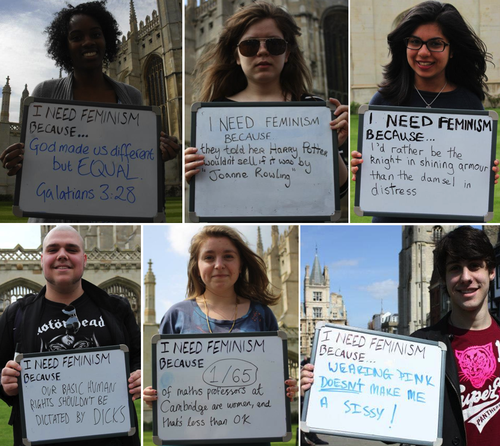 I NEED FEMINISM
BECAUSE...
God made us different
but EQUAL.
Galatians 3:28
I NEED FEMINISM
BECAUSE
they told her Harry Potter
wouldn't sell if it was by
"Joanne Rowling"
I NEED FEMINISM
BECAUSE...
I'd rather be the
knight in shining armour
than the damsel in
distress
Motörhead
I NEED FEMINISM
BECAUSE
OUR BASIC HUMAN
RIGHTS SHOULDN'T BE
DICTATED BY DICKS
I NEED FEMINISM
BECAUSE
1/65
of maths professors at
Cambridge are women, and
that's less than OK
I NEED FEMINISM
BECAUSE...
WEARING PINK
DOESN'T MAKE ME
A SISSY!
Super